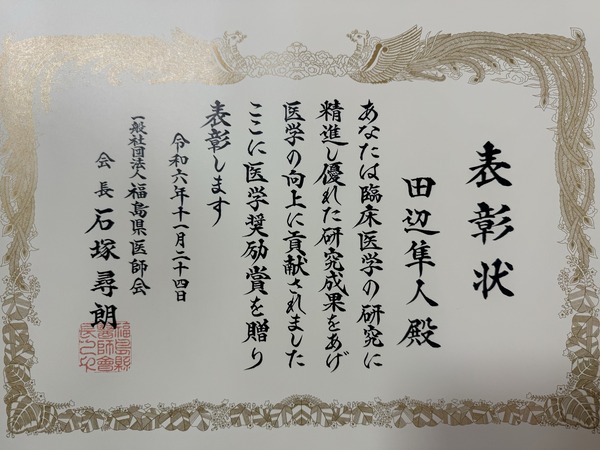 表彰状
田辺隼人殿
あなたは臨床医学の研究に
精進し優れた研究成果をあげ
医学の向上に貢献されました
ここに医学奨励賞を贈り
表彰します
令和六年十一月二十四日
一般社団法人福島県医師会
会長石塚尋朗
福島縣
醫師會
長之印